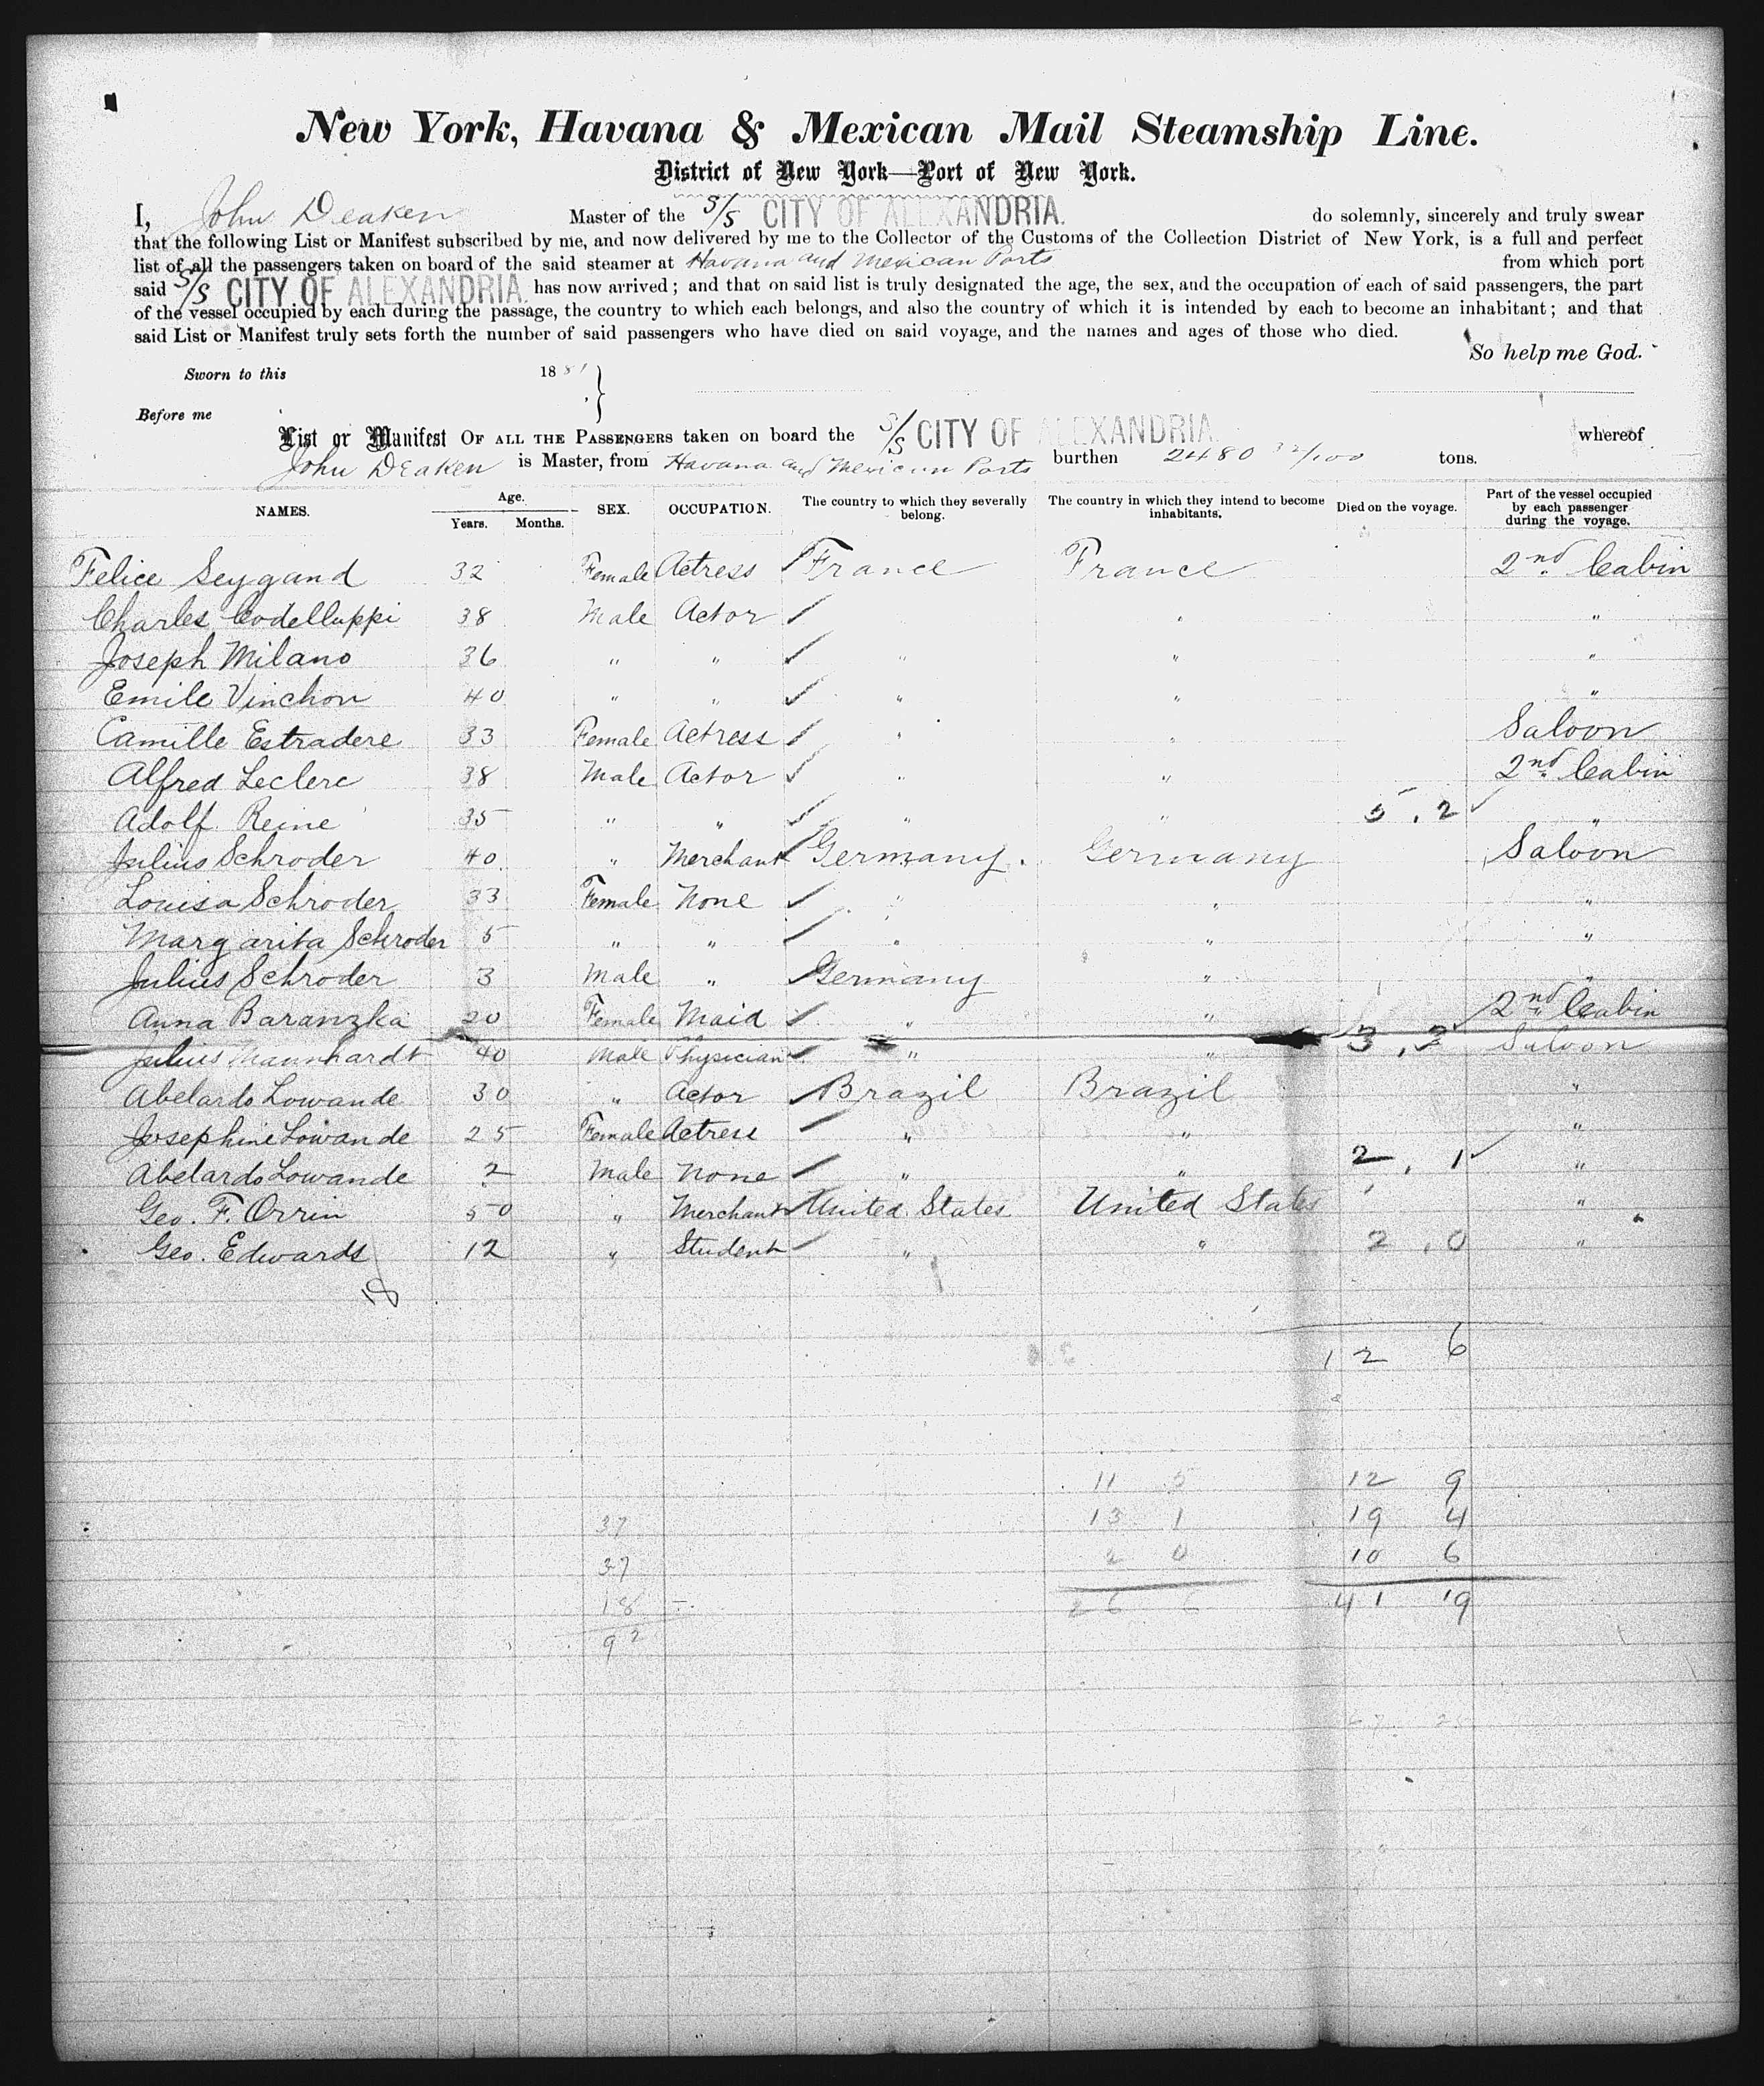 New York, Havana & Mexican Mail Steamship Line.
District of New York—Port of New York.
I, John Deaken Master of the S/S CITY OF ALEXANDRIA. do solemnly, sincerely and truly swear
that the following List or Manifest subscribed by me, and now delivered by me to the Collector of the Customs of the Collection District of New York, is a full and perfect
list of all the passengers taken on board of the said steamer at Havana and Mexican Ports from which port
said S/S CITY OF ALEXANDRIA. has now arrived; and that on said list is truly designated the age, the sex, and the occupation of each of said passengers, the part
of the vessel occupied by each during the passage, the country to which each belongs, and also the country of which it is intended by each to become an inhabitant; and that
said List or Manifest truly sets forth the number of said passengers who have died on said voyage, and the names and ages of those who died.
So help me God.
Sworn to this 1881
Before me
List or Manifest OF ALL THE PASSENGERS taken on board the S/S CITY OF ALEXANDRIA. whereof
John Deaken is Master, from Havana and Mexican Ports burthen 2480 32/100 tons.
NAMES. Age. Years. Months. SEX. OCCUPATION. The country to which they severally belong. The country in which they intend to become inhabitants. Died on the voyage. Part of the vessel occupied by each passenger during the voyage.
Felice Seygand 32 Female Actress ✓ France France 2nd Cabin
Charles Codelluppi 38 Male Actor ✓ " "
Joseph Milano 36 " " ✓ " " "
Emile Vinchon 40 " " ✓ " " "
Camille Estradere 33 Female Actress ✓ " " Saloon
Alfred Leclerc 38 Male Actor ✓ " " 2nd Cabin
Adolf Reine 35 " " ✓ " " 5.2 ✓ "
Julius Schroder 40 " Merchant ✓ Germany. Germany Saloon
Louisa Schroder 33 Female None ✓ " " "
Margarita Schroder 5 " " ✓ " " "
Julius Schroder 3 Male " ✓ Germany " "
Anna Baranzka 20 Female Maid ✓ " " 2nd Cabin
Julius Mannhardt 40 Male Physician ✓ " " 3.3 ✓ Saloon
Abelardo Lowande 30 " Actor ✓ Brazil Brazil "
Josephine Lowande 25 Female Actress ✓ " " "
Abelardo Lowande 2 Male None ✓ " " 2.1 ✓ "
Geo. F. Orrin 50 " Merchant ✓ United States United States "
Geo. Edwards 12 " Student ✓ " " 2.0 "
18
12 6
11 5 12 9
37 13 1 19 4
37 2 0 10 6
18 26 6 41 19
92